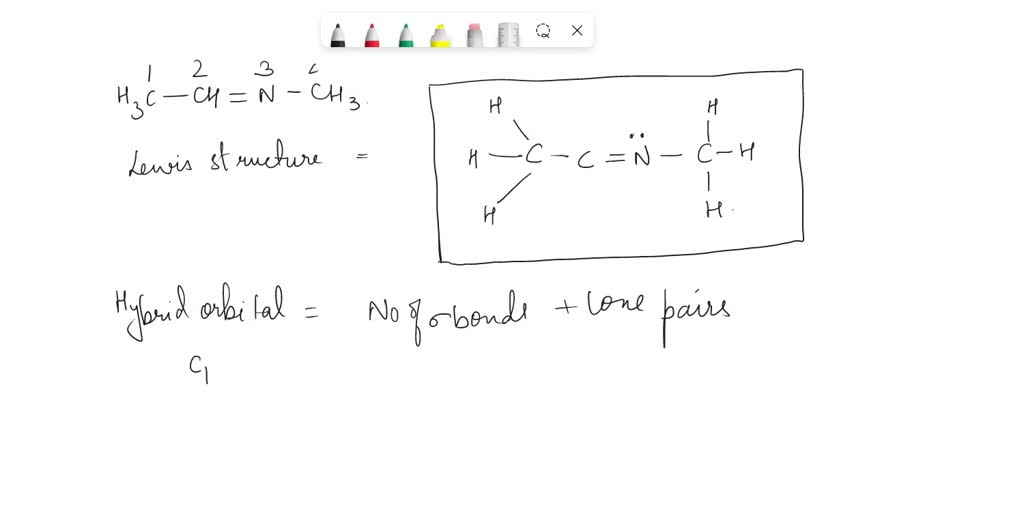 1 2 3 4
H3C — CH = N — CH3.
Lewis structure =
H H
H — C — C = N̈ — C — H
H H.
Hybrid orbital = No of σ bonds + lone pairs
C1